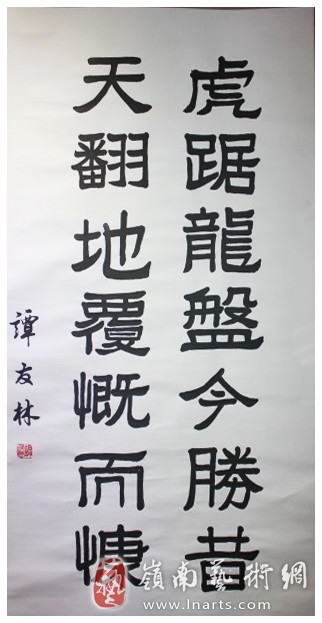 虎踞龍盤今勝昔
天翻地覆慨而慷
譚友林
嶺南藝術網
www.lnarts.com